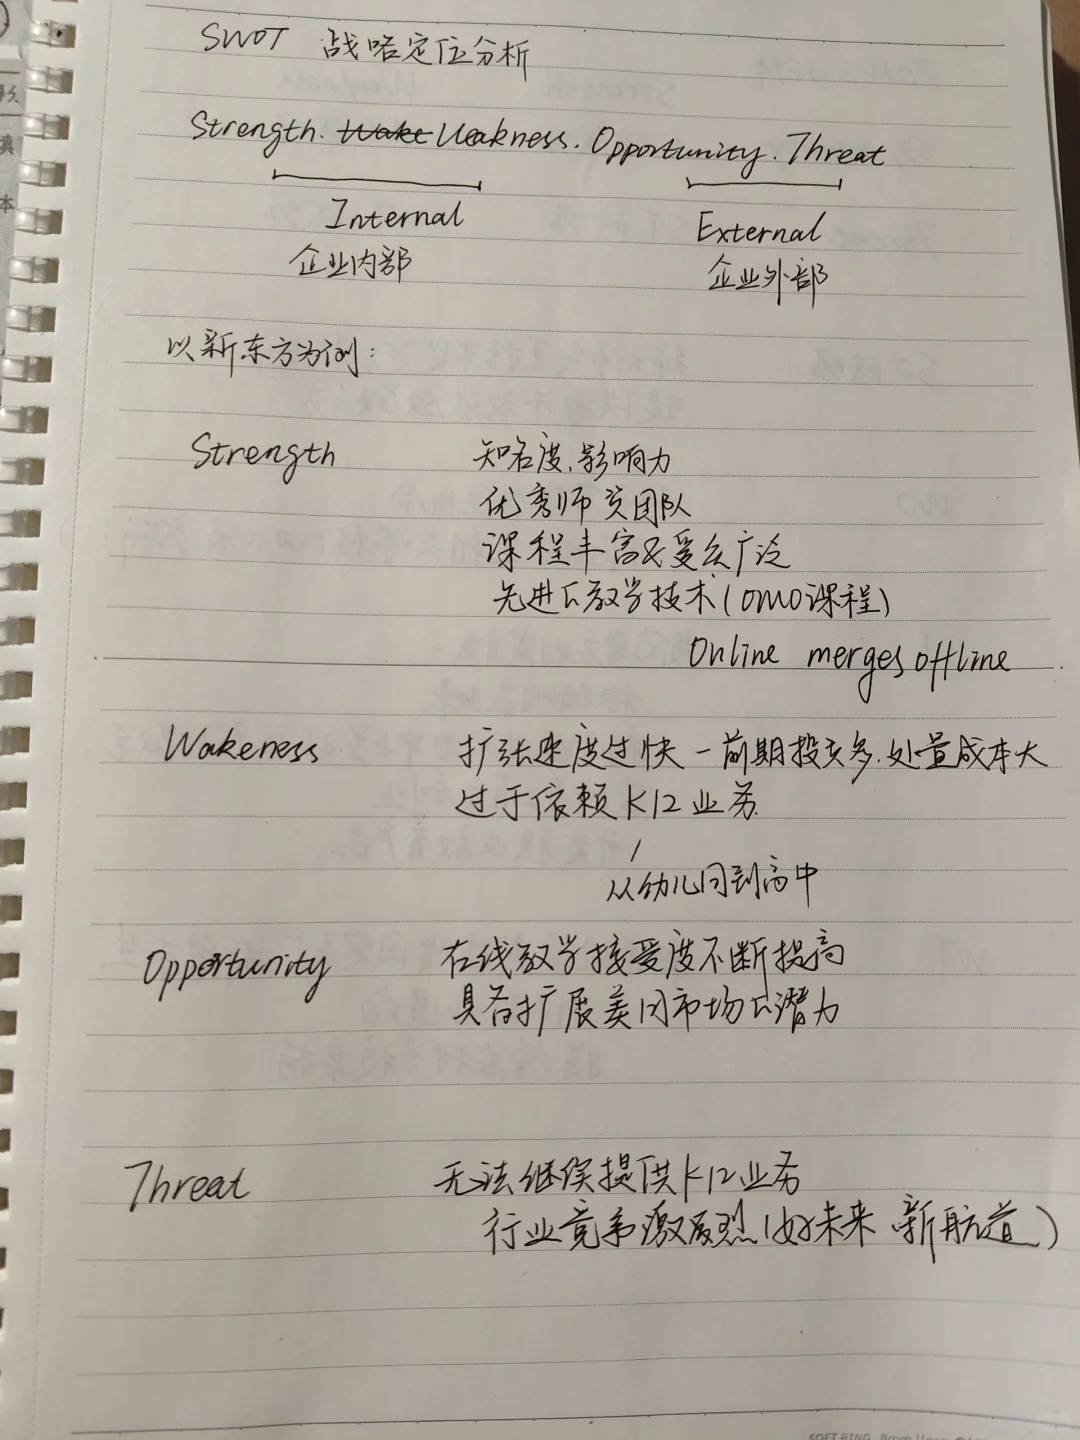 SWOT 战略定位分析
Strength. Weakness. Opportunity. Threat
Internal External
企业内部 企业外部
以新东方为例:
Strength 知名度、影响力
优秀师资团队
课程丰富及受众广泛
先进的教学技术(OMO课程)
Online merges offline
Wakeness 扩张速度过快 - 前期投资多、处置成本大
过于依赖K12业务
从幼儿园到高中
Opportunity 在线教学接受度不断提高
具备扩展美国市场的潜力
Threat 无法继续提供K12业务
行业竞争激烈(好未来 新航道)